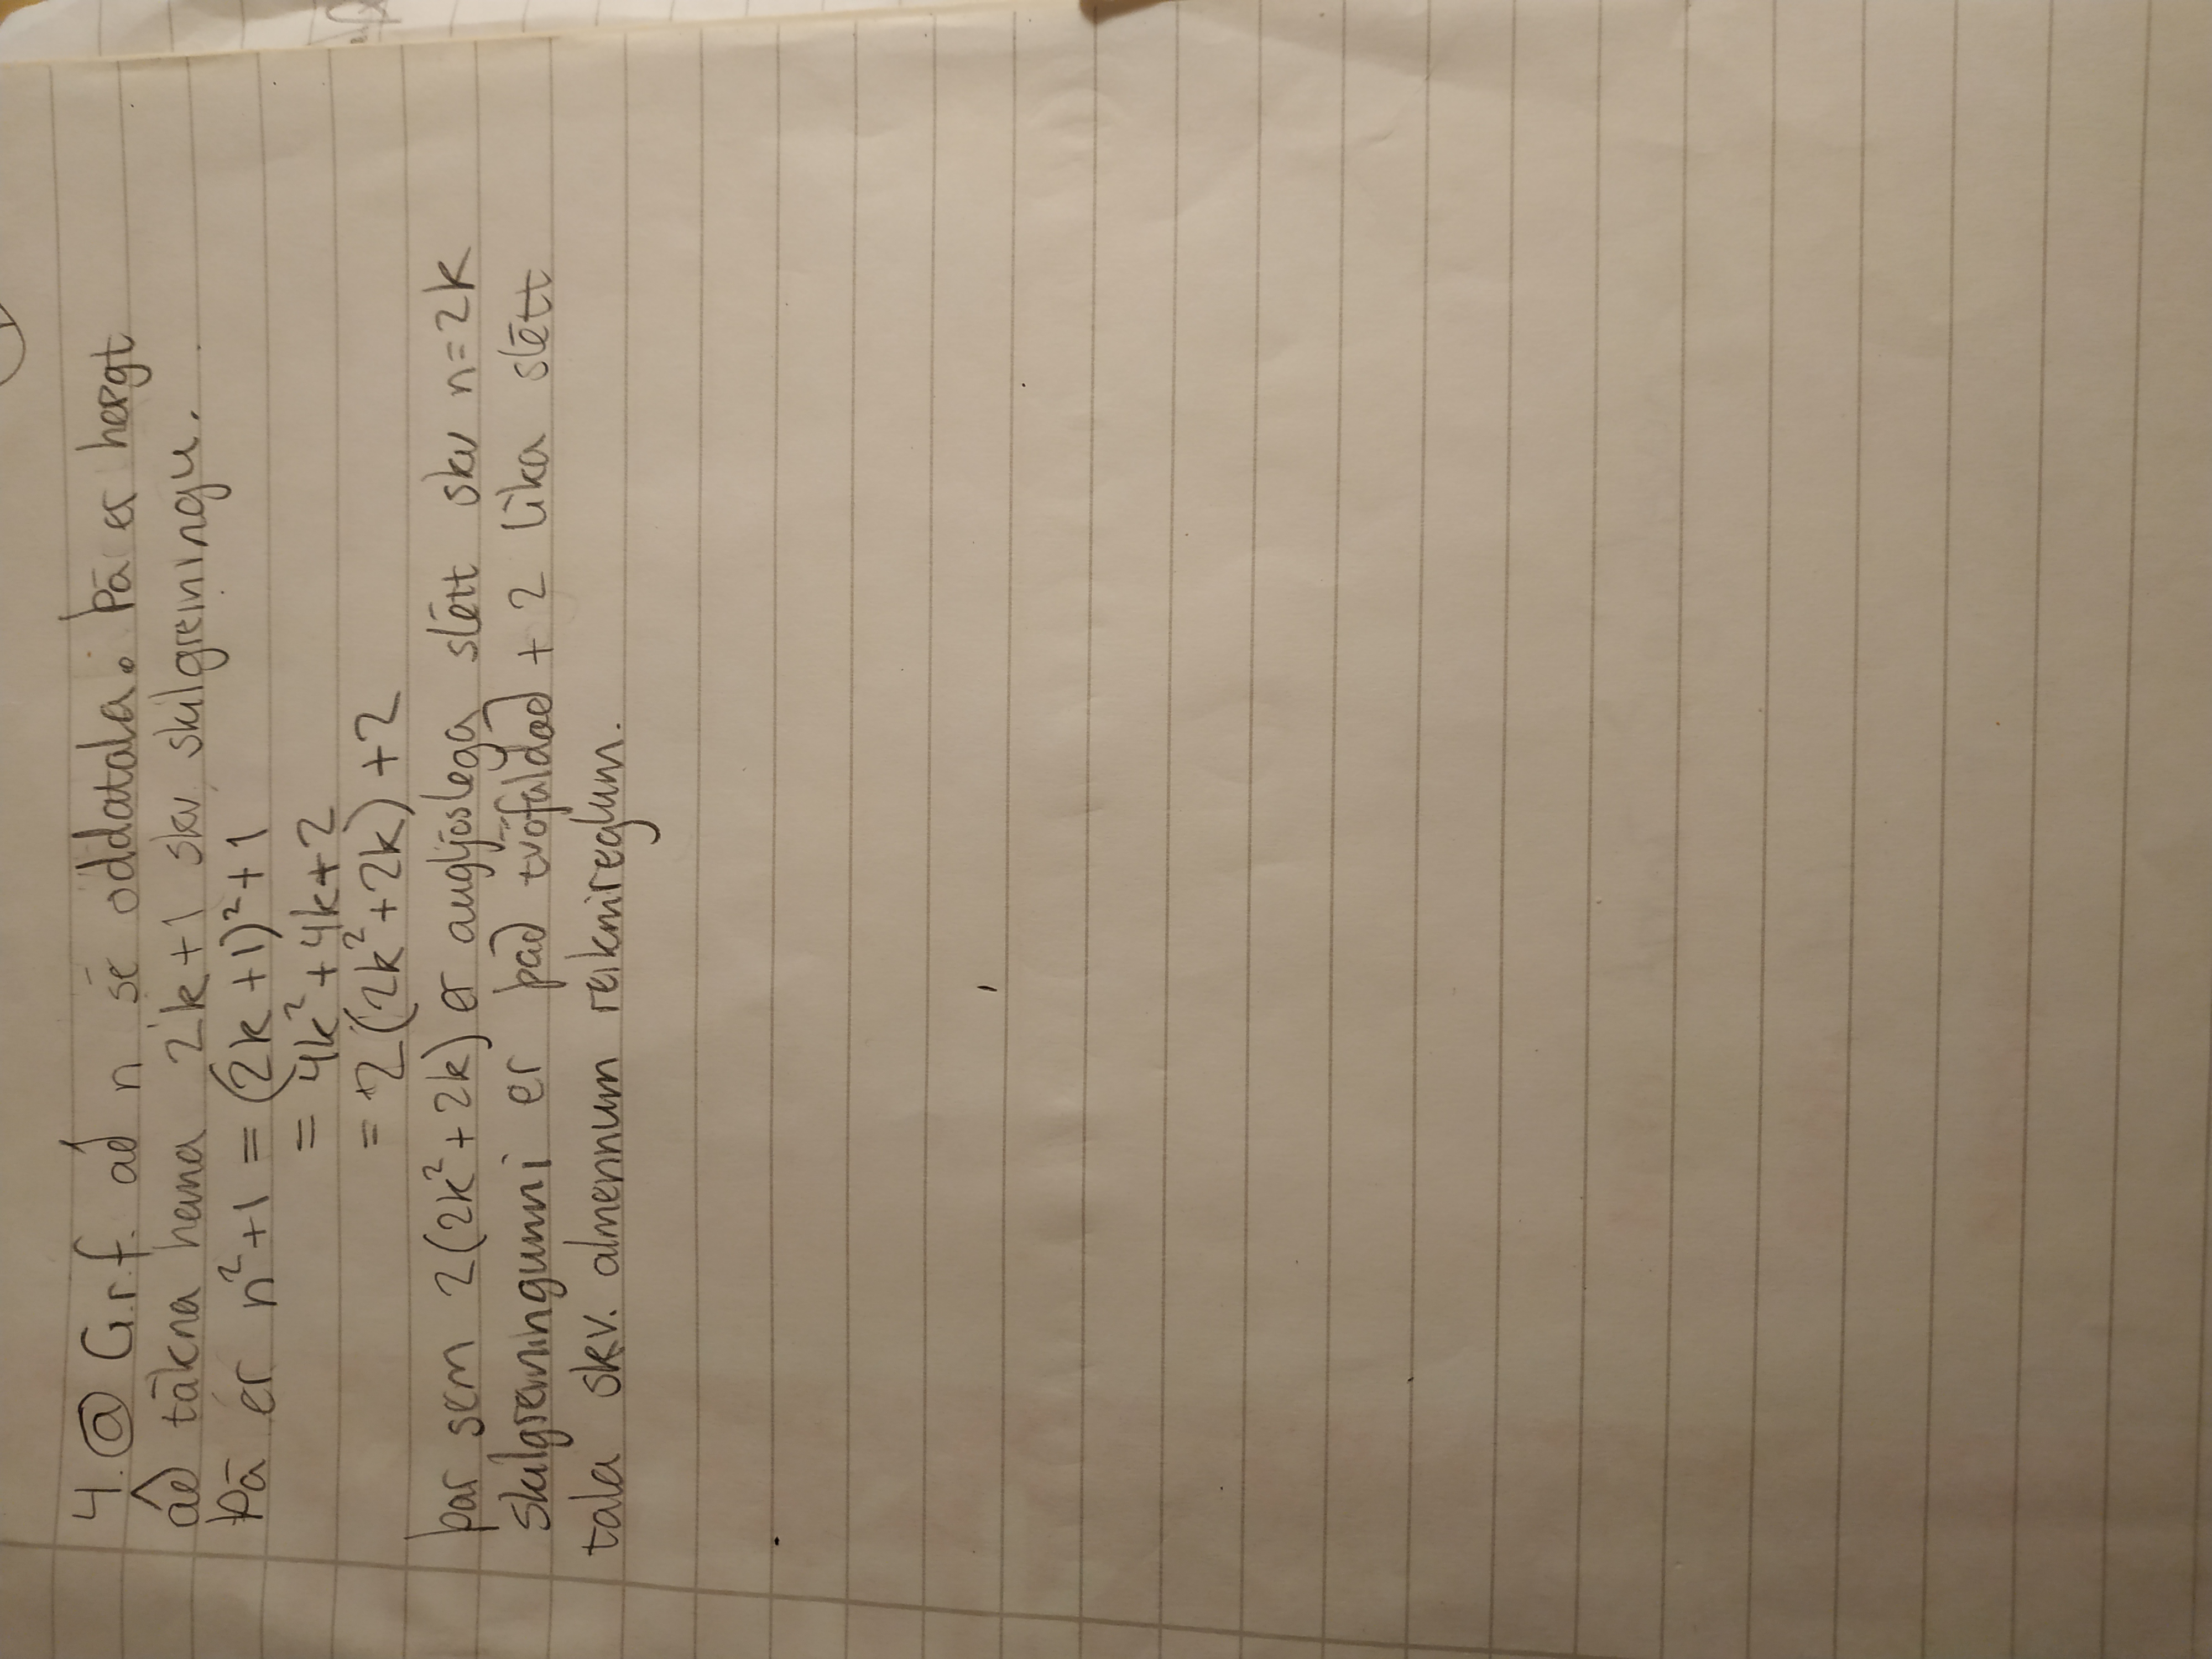 4. ⓐ G.r.f. að n sé oddatala. Þá er hægt
að tákna hana 2k+1 skv. skilgreiningu.
Þá er n²+1 = (2k+1)²+1
= 4k²+4k+2
= 2(2k²+2k)+2
þar sem 2(2k²+2k) er augljóslega slétt skv n=2k
skilgreiningunni er það tvöfaldað + 2 líka slétt
tala skv. almennum reiknireglum.